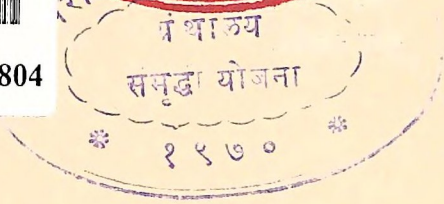 804
ग्रंथालय
समृद्धी योजना
* १९७० *